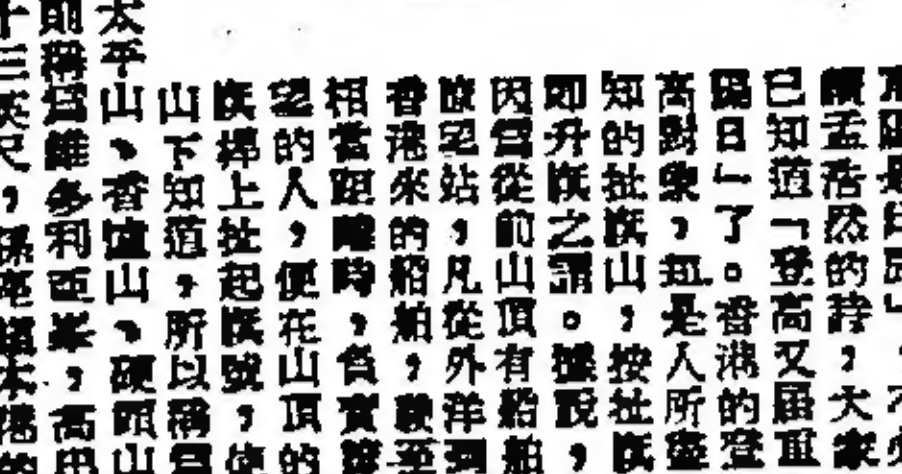 讀孟浩然的詩,大家
已知道「登高又屆重
陽日」了。香港的登
高對象,是人所盡
知的扯旗山,按扯旗
即升旗之謂。據說,
因爲從前山頂有船舶
望站,凡從外洋到
香港來的船舶,駛至
相當距離時,負責
望的人,便在山頂的
旗桿上扯起旗號,使
山下知道,所以稱爲
太平山、香爐山、硬頭山
則稱爲維多利亞峯,高出
十三英尺,本港的